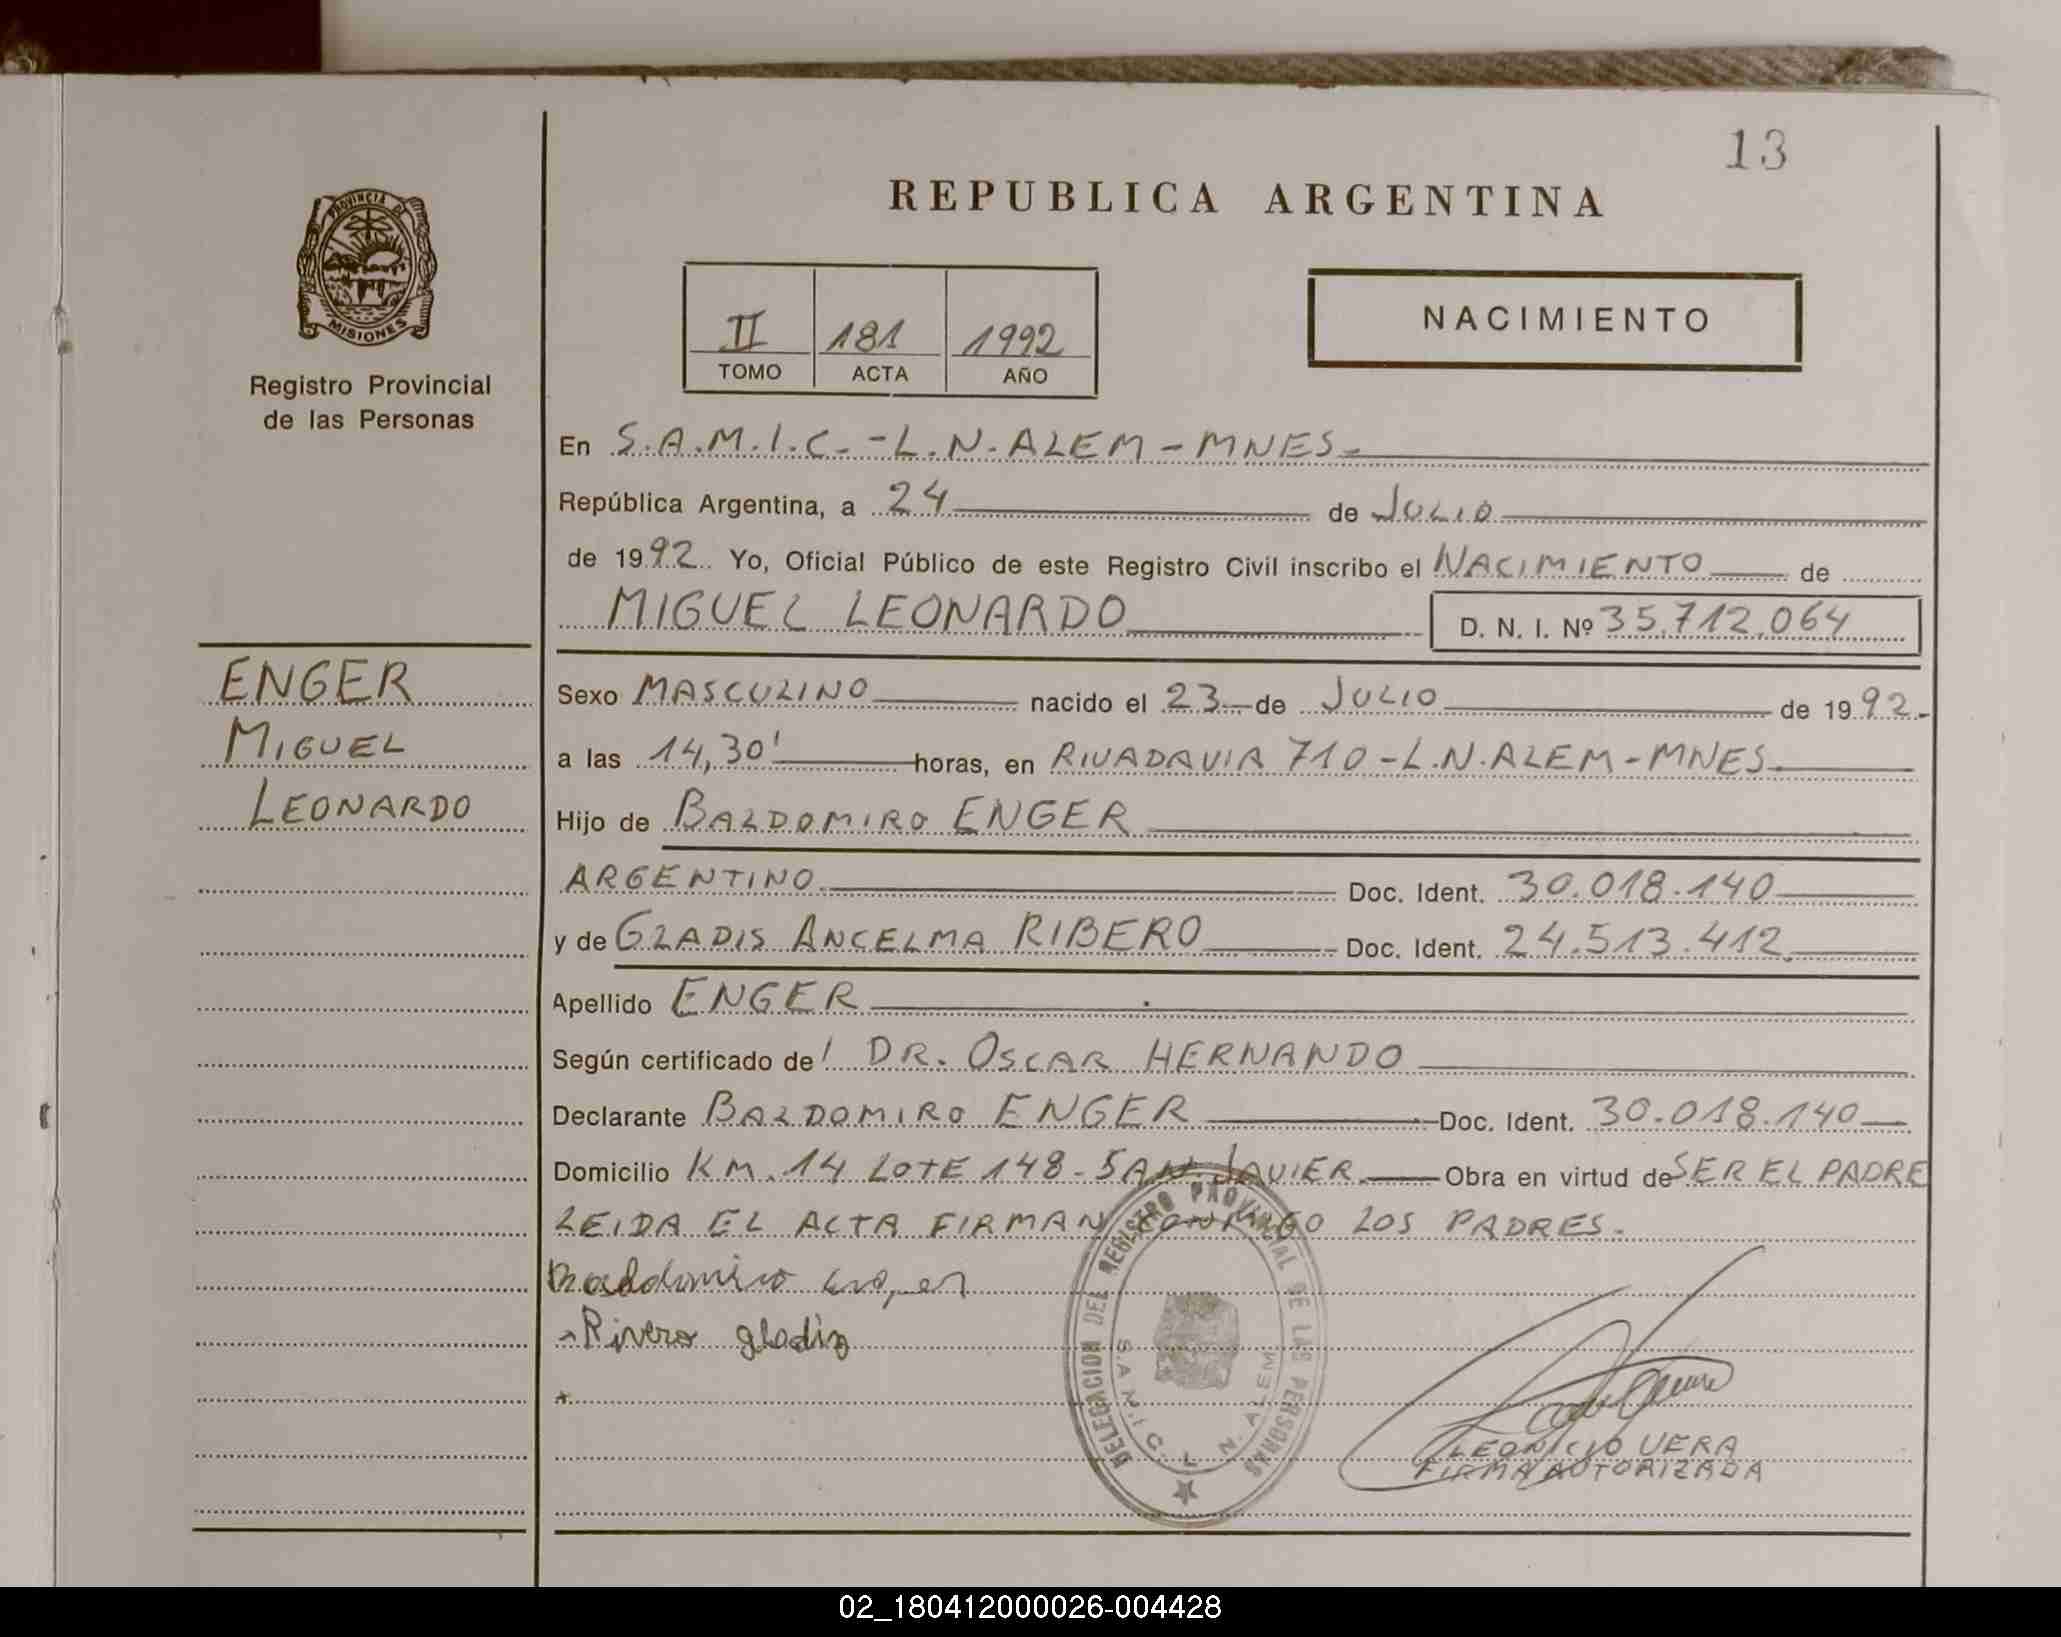 13
REPUBLICA ARGENTINA
PROVINCIA DE
MISIONES
Registro Provincial
de las Personas
II 181 1992
TOMO ACTA AÑO
NACIMIENTO
En S.A.M.I.C.-L.N.ALEM-MNES.
República Argentina, a 24 de JULIO
de 1992 Yo, Oficial Público de este Registro Civil inscribo el NACIMIENTO de
MIGUEL LEONARDO D. N. I. Nº 35.712.064
ENGER
MIGUEL
LEONARDO
Sexo MASCULINO nacido el 23 de JULIO de 1992.-
a las 14,30' horas, en RIVADAVIA 710-L.N.ALEM-MNES.
Hijo de BALDOMIRO ENGER
ARGENTINO Doc. Ident. 30.018.140
y de GLADIS ANCELMA RIBERO Doc. Ident. 24.513.412
Apellido ENGER
Según certificado de DR. OSCAR HERNANDO
Declarante BALDOMIRO ENGER Doc. Ident. 30.018.140
Domicilio KM. 14 LOTE 148-SAN JAVIER. Obra en virtud de SER EL PADRE
LEIDA EL ACTA FIRMAN CONMIGO LOS PADRES.
Rivero gladiz
DELEGACION DEL REGISTRO PROVINCIAL DE LAS PERSONAS
S.A.M.I.C. L. N. ALEM
LEONICIO VERA
FIRMA AUTORIZADA
02_180412000026-004428